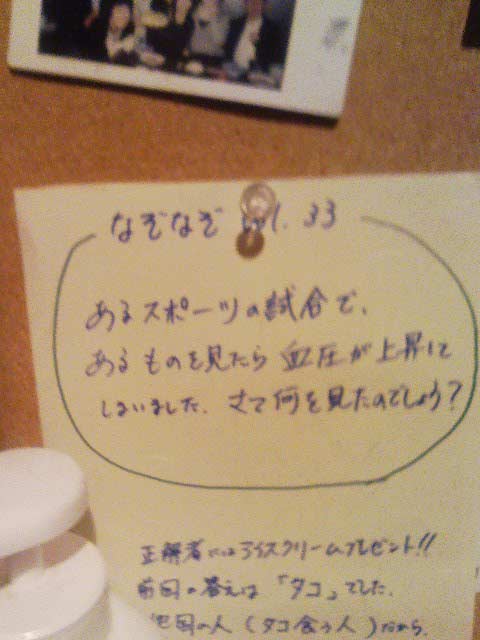 なぞなぞ vol. 33
あるスポーツの試合で、
あるものを見たら血圧が上昇して
しまいました. さて何を見たのでしょう?
正解者にはアイスクリームプレゼント!!
前回の答えは「タコ」でした.
他国の人(タコ食う人)だから.